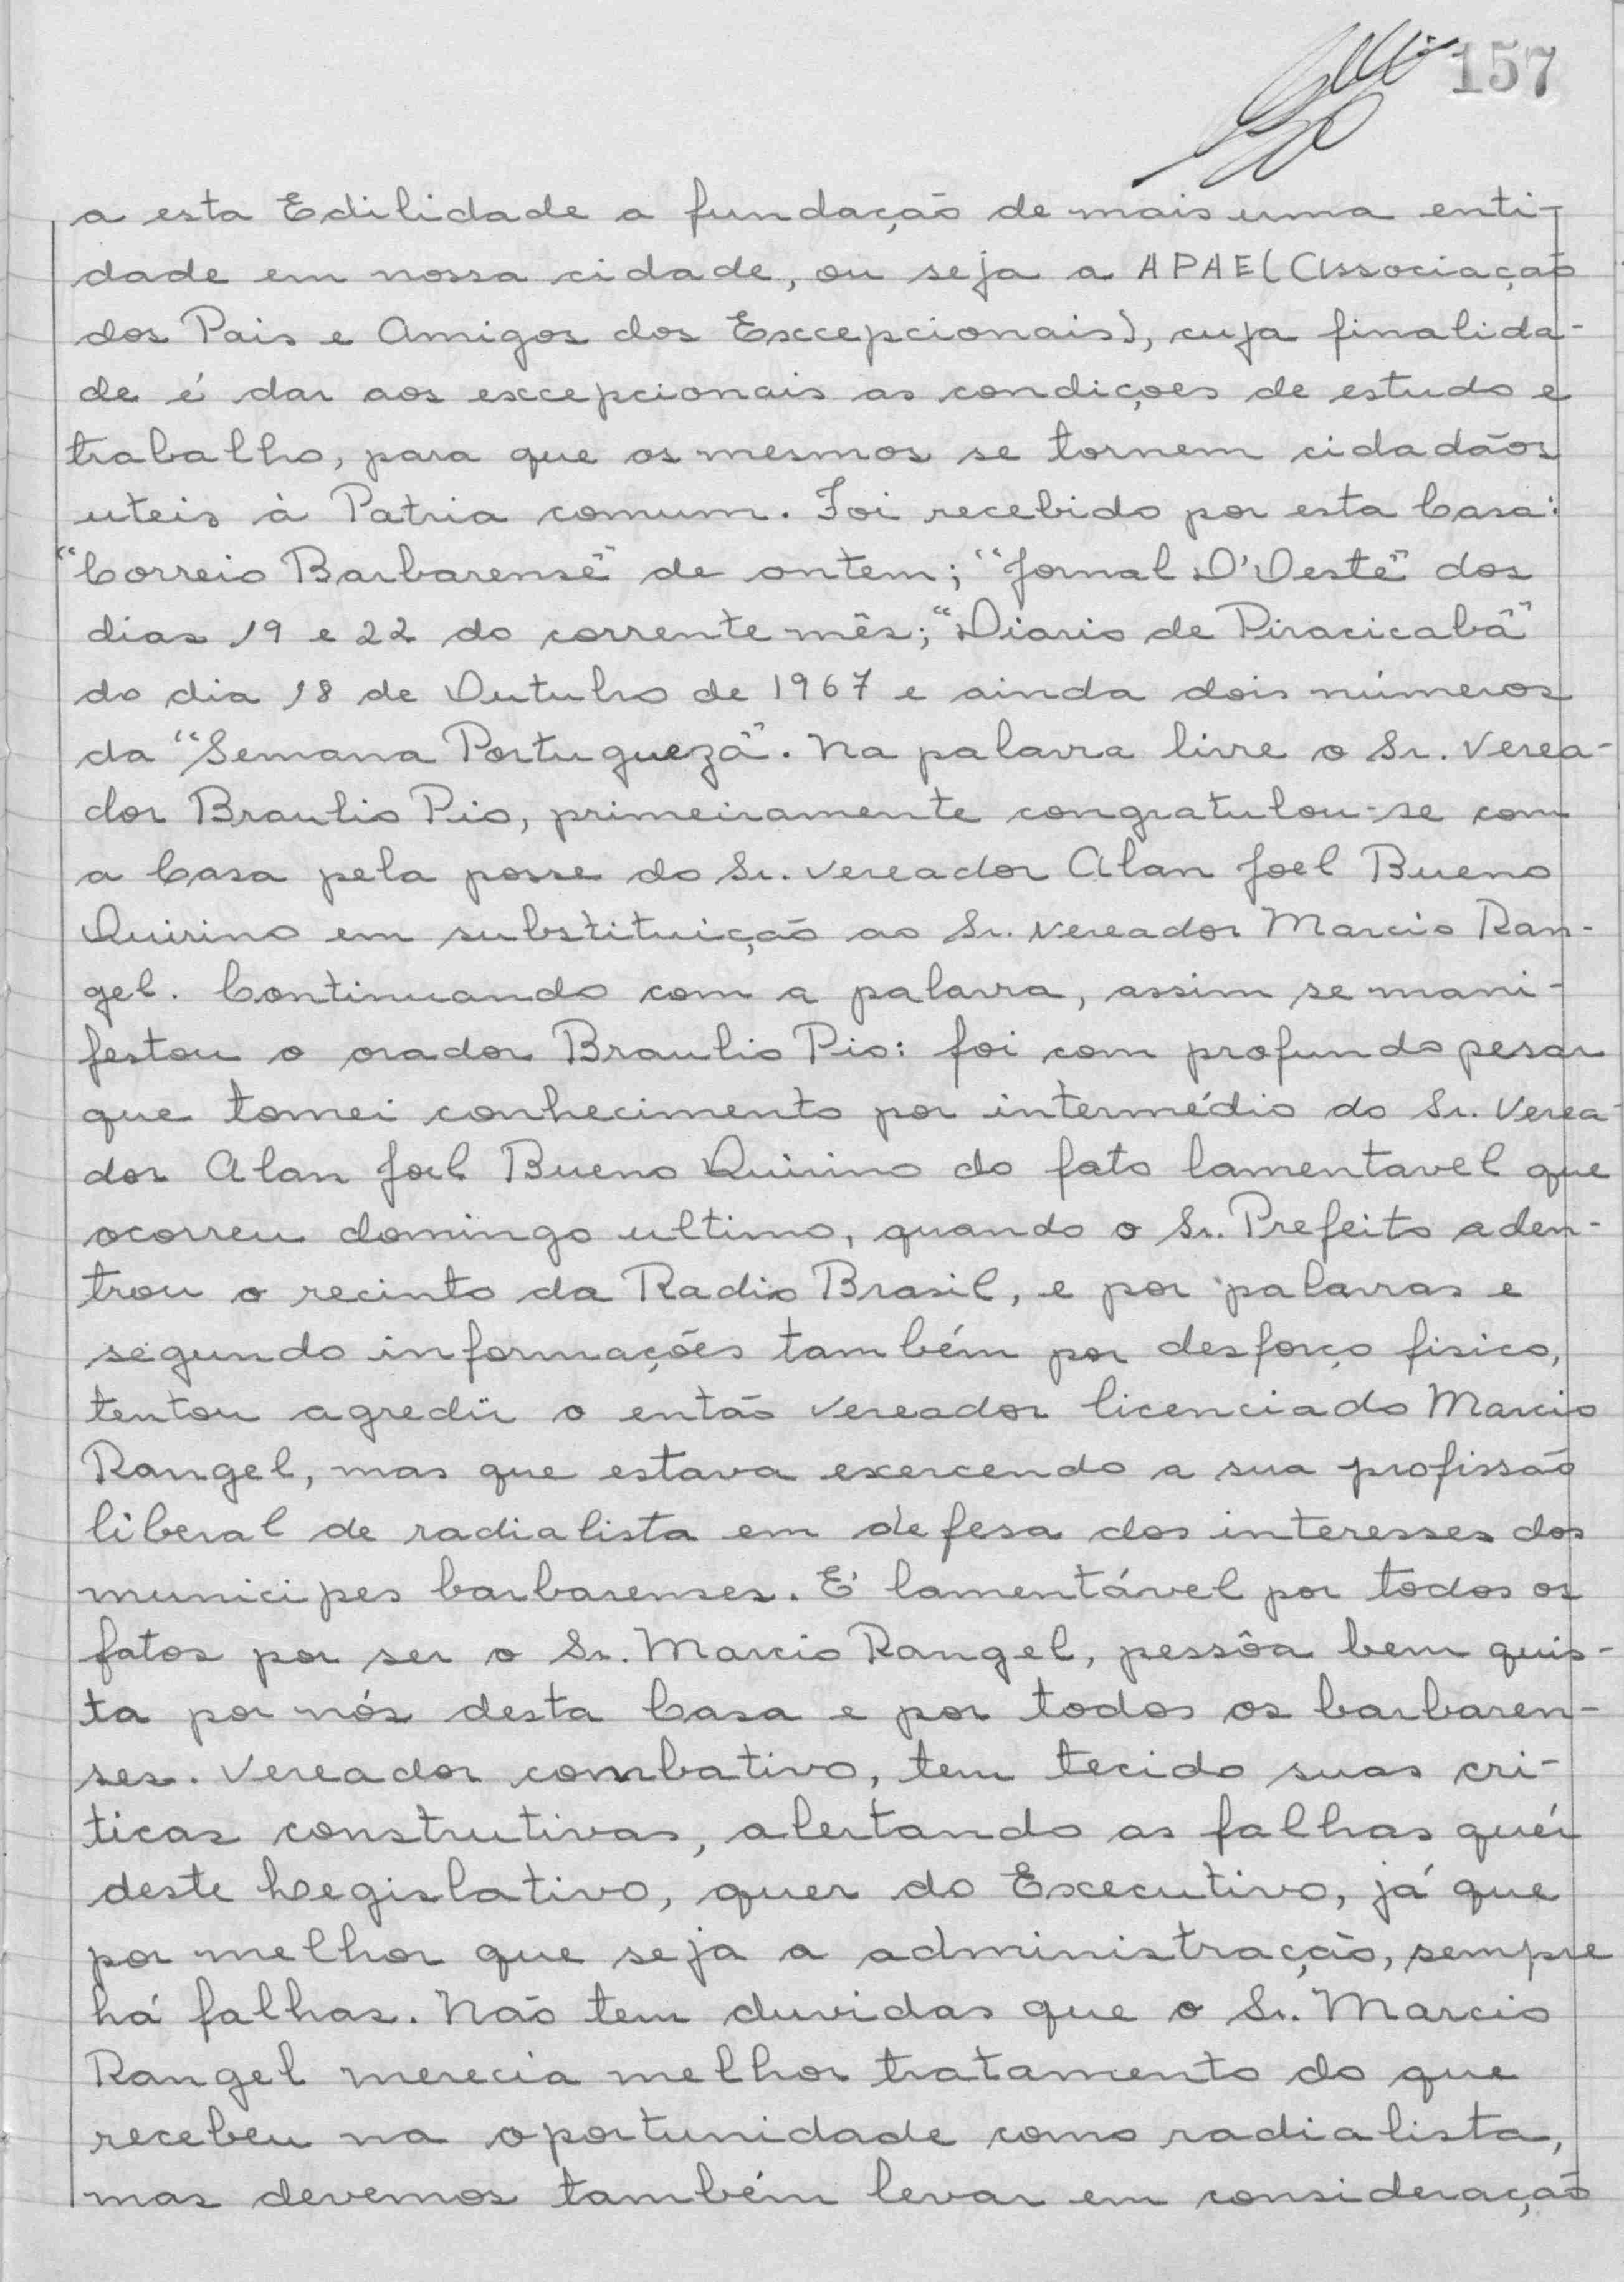 157
a esta Edilidade a fundação de mais uma enti-
dade em nossa cidade, ou seja a APAE (Associação
dos Pais e Amigos dos Excepcionais), cuja finalida-
de é dar aos excepcionais as condições de estudo e
trabalho, para que os mesmos se tornem cidadãos
uteis à Patria comum. Foi recebido por esta Casa:
"Correio Barbarense" de ontem; "Jornal D'Oeste" dos
dias 19 e 22 do corrente mês; "Diario de Piracicaba"
do dia 18 de Outubro de 1967 e ainda dois números
da "Semana Portugueza". Na palavra livre o Sr. Verea-
dor Braulio Pio, primeiramente congratulou-se com
a Casa pela posse do Sr. Vereador Alan Joel Bueno
Quirino em substituição ao Sr. Vereador Marcio Ran-
gel. Continuando com a palavra, assim se mani-
festou o orador Braulio Pio: foi com profundo pesar
que tomei conhecimento por intermédio do Sr. Verea-
dor Alan Joel Bueno Quirino do fato lamentavel que
ocorreu domingo ultimo, quando o Sr. Prefeito aden-
trou o recinto da Radio Brasil, e por palavras e
segundo informações também por desforço fisico,
tentou agredir o então Vereador licenciado Marcio
Rangel, mas que estava exercendo a sua profissão
liberal de radialista em defesa dos interesses dos
municipes barbarenses. E' lamentável por todos os
fatos por ser o Sr. Marcio Rangel, pessôa bem quis-
ta por nós desta Casa e por todos os barbaren-
ses. Vereador combativo, tem tecido suas cri-
ticas construtivas, alertando as falhas quér
deste Legislativo, quer do Executivo, já que
por melhor que seja a administração, sempre
há falhas. Não tem duvidas que o Sr. Marcio
Rangel merecia melhor tratamento do que
recebeu na oportunidade como radialista,
mas devemos também levar em consideração